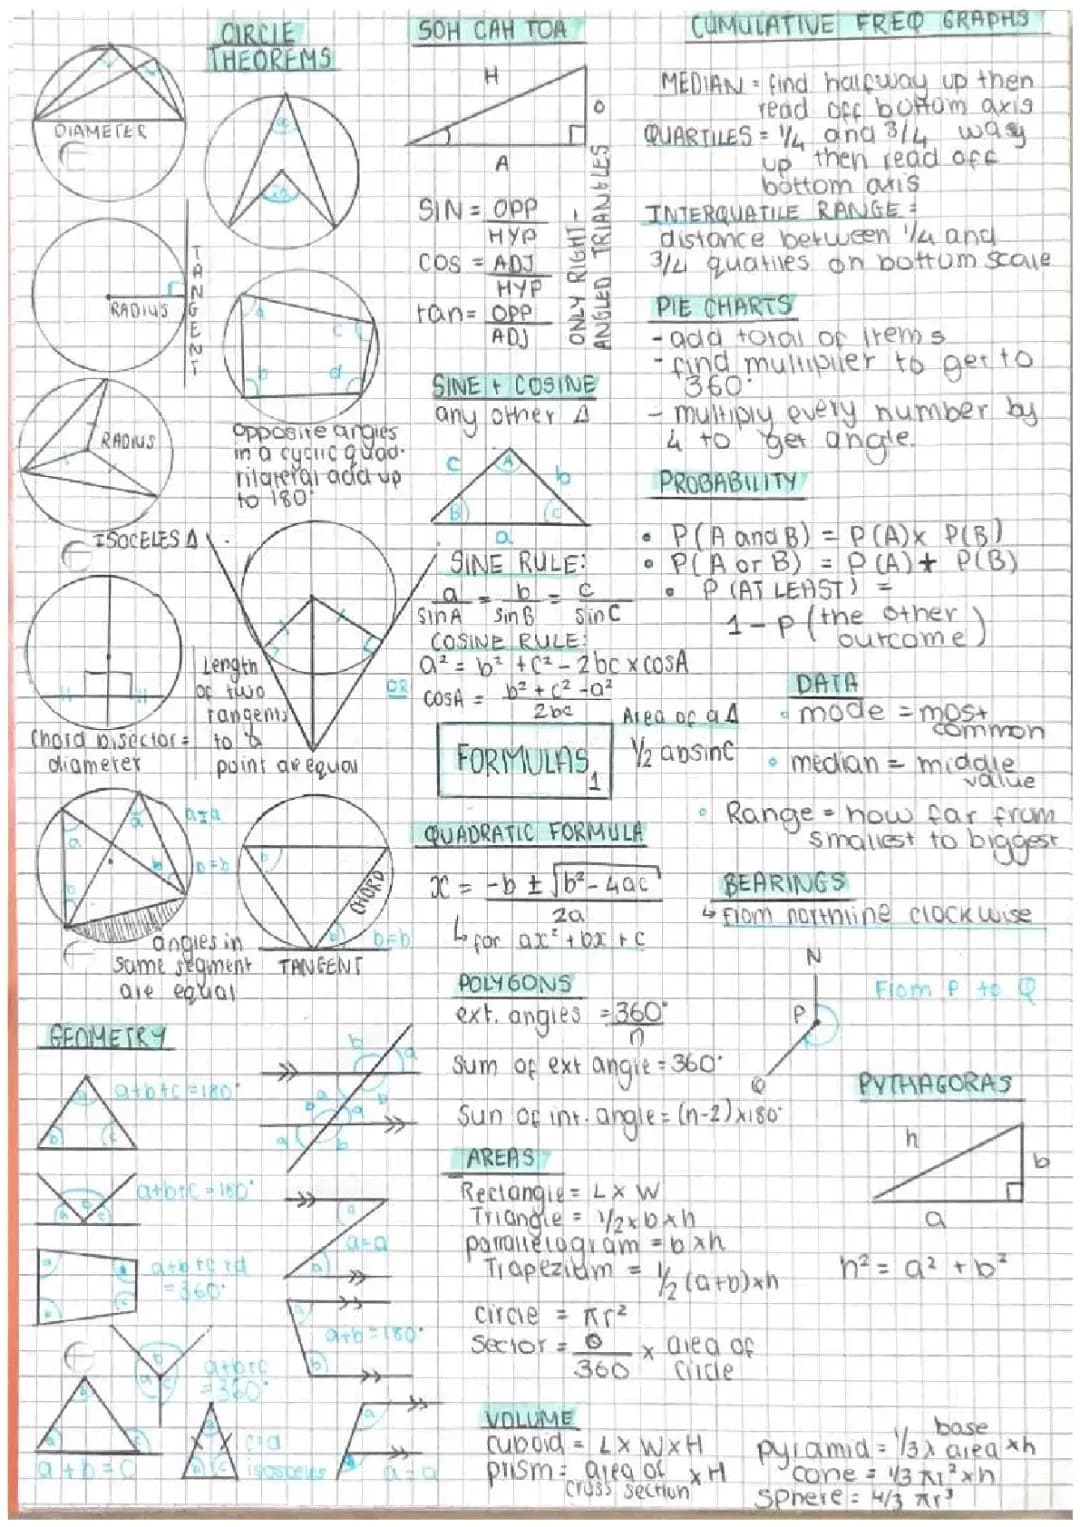 CIRCLE
THEOREMS
DIAMETER
a
2a
RADIUS
TANGENT
a
b
c
d
opposite angles
in a cyclic quad-
rilateral add up
to 180°
RADIUS
ISOCELES Δ
Chord bisector =
diameter
Length
of two
tangents
to a
point are equal
a=a
b=b
angles in
same segment
are equal
CHORD
b=b
TANGENT
GEOMETRY
a+b+c=180°
a+b+c=180°
a+b+c+d
=360°
a+b+c
=360°
a+b=c
c=a
isosceles
a=a
a+b=180°
a=a
SOH CAH TOA
H
O
A
SIN = OPP
HYP
COS = ADJ
HYP
tan = OPP
ADJ
ONLY RIGHT-
ANGLED TRIANGLES
SINE + COSINE
any other Δ
c
A
b
B
C
a
SINE RULE:
a = b = c
SinA SinB SinC
COSINE RULE:
a² = b² + c² - 2bc x cosA
OR
cosA = b² + c² - a²
2bc
Area of a Δ
½ absinc
FORMULAS
1
QUADRATIC FORMULA
x = -b ± √b² - 4ac
2a
↳ for ax² + bx + c
POLYGONS
ext. angles = 360°
n
Sum of ext angle = 360°
Sun of int. angle = (n-2)x180°
AREAS
Rectangle = L x W
Triangle = 1/2 x b x h
parallelogram = b x h
Trapezium = ½ (a+b) x h
circle = πr²
Sector = θ x area of
360 circle
VOLUME
cuboid = L x W x H
prism = area of x H
cross section
base
pyramid = 1/3 x area x h
cone = 1/3 πr² x h
sphere = 4/3 πr³
CUMULATIVE FREQ GRAPHS
MEDIAN = find halfway up then
read off bottom axis
QUARTILES = ¼ and 3/4 way
up then read off
bottom axis
INTERQUATILE RANGE =
distance between ¼ and
3/4 quatiles on bottom scale
PIE CHARTS
- add total of items
- find multiplier to get to
360°
- multiply every number by
4 to get angle.
PROBABILITY
• P(A and B) = P(A) x P(B)
• P(A or B) = P(A) + P(B)
• P(AT LEAST) =
1 - P(the other
outcome)
DATA
• mode = most
common
• median = middle
value
• Range = how far from
smallest to biggest
BEARINGS
↳ from northline clockwise
N
From P to Q
P
Q
PYTHAGORAS
h
b
a
h² = a² + b²